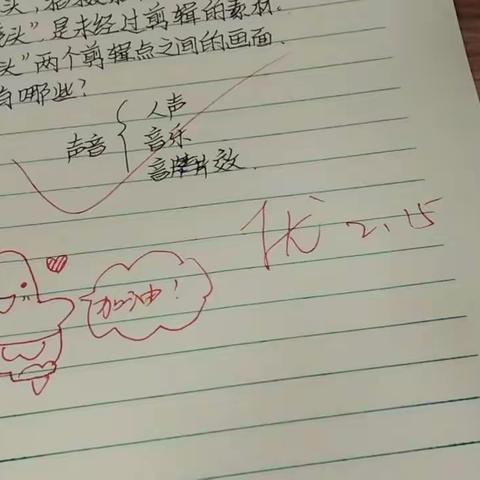 是未经过剪辑的素材.
头”两个剪辑点之间的画面.
有哪些?
声音 { 人声
音乐
音效
优 2.15
加油!